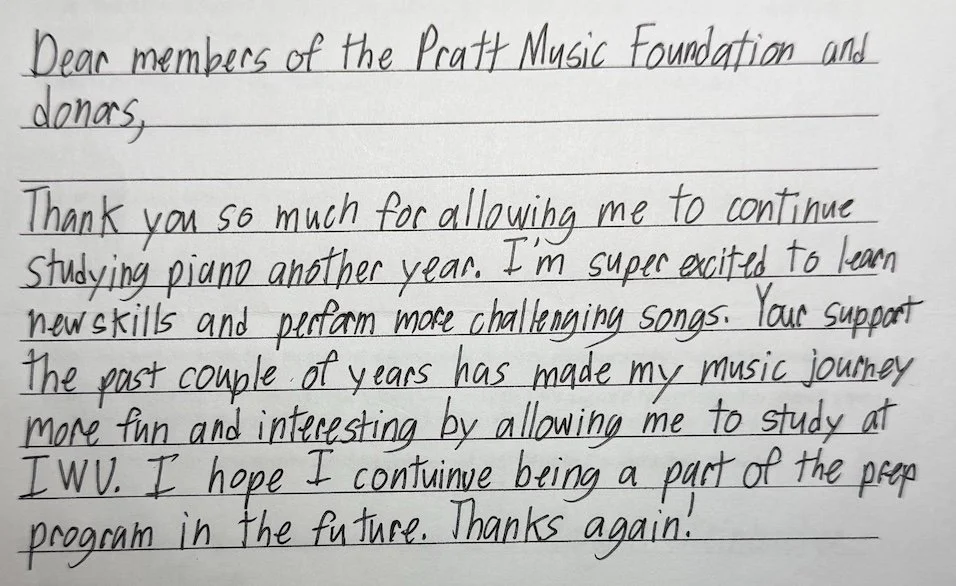 Dear members of the Pratt Music Foundation and
donors,
Thank you so much for allowing me to continue
studying piano another year. I'm super excited to learn
new skills and perform more challenging songs. Your support
the past couple of years has made my music journey
more fun and interesting by allowing me to study at
IWU. I hope I contuinue being a part of the prep
program in the future. Thanks again!